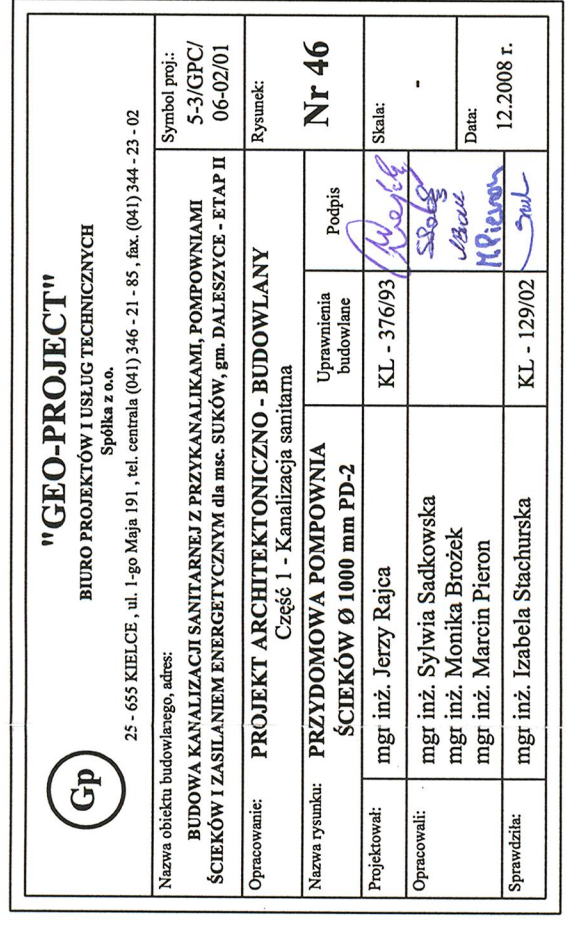 Gp
"GEO-PROJECT"
BIURO PROJEKTÓW I USŁUG TECHNICZNYCH
Spółka z o.o.
25 - 655 KIELCE , ul. 1-go Maja 191 , tel. centrala (041) 346 - 21 - 85 , fax. (041) 344 - 23 - 02
Nazwa obiektu budowlanego, adres:
BUDOWA KANALIZACJI SANITARNEJ Z PRZYKANALIKAMI, POMPOWNIAMI
ŚCIEKÓW I ZASILANIEM ENERGETYCZNYM dla msc. SUKÓW, gm. DALESZYCE - ETAP II
Symbol proj.:
5-3/GPC/
06-02/01
Opracowanie:
PROJEKT ARCHITEKTONICZNO - BUDOWLANY
Część 1 - Kanalizacja sanitarna
Rysunek:
Nr 46
Nazwa rysunku:
PRZYDOMOWA POMPOWNIA
ŚCIEKÓW Ø 1000 mm PD-2
Uprawnienia
budowlane
Podpis
Projektował:
mgr inż. Jerzy Rajca
KL - 376/93
Skala:
-
Opracowali:
mgr inż. Sylwia Sadkowska
mgr inż. Monika Brożek
mgr inż. Marcin Pieron
M.Pieron
Data:
12.2008 r.
Sprawdziła:
mgr inż. Izabela Stachurska
KL - 129/02